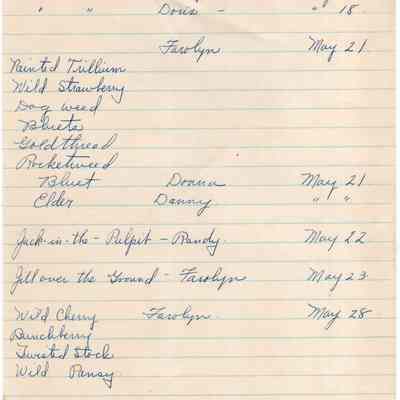 " " Doris - " 18.
Farolyn May 21
Painted Trillium
Wild Strawberry
Dog weed
Bluets
Goldthread
Rocketweed
Bluet Donna May 21
Elder Danny " "
Jack-in-the-Pulpit - Randy. May 22
Jill over the Ground - Farolyn May 23
Wild Cherry Farolyn. May 28
Bunchberry
Twisted Stock
Wild Pansy.